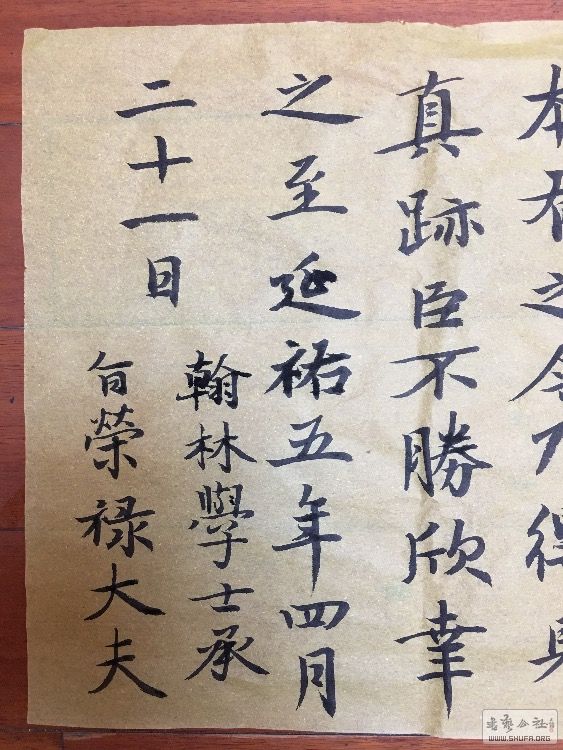 本有之今乃得見
真跡臣不勝欣幸
之至延祐五年四月
二十一日
翰林學士承
旨榮禄大夫
书艺公社
WWW.SHUFA.ORG